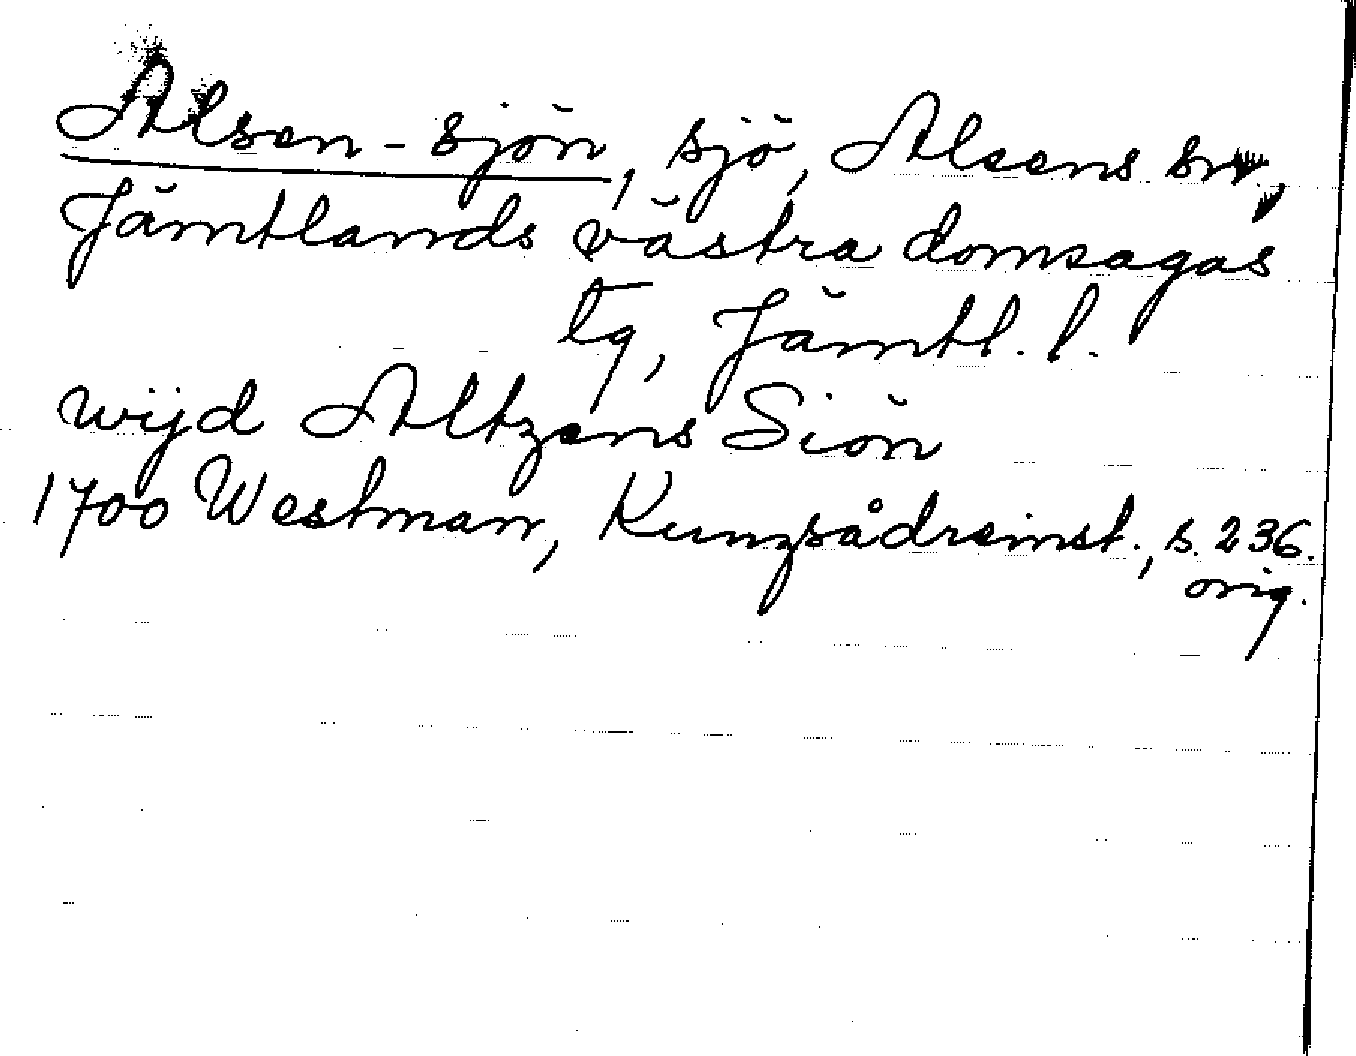 Alsen-sjön, sjö, Alsens sn,
Jämtlands västra domsagas
tg, Jämtl. l.
wijd Altzens Siön
1700 Westman, Kunzsådreinst., s. 236.
orig.